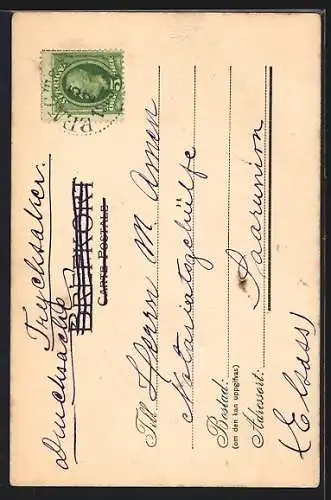 Trycksaker.
Drucksache
BREFKORT
CARTE POSTALE
Till Herrn M. Amen
Notariatsgehülfe
Bostad:
(om den kan uppgifvas)
Adressort: Saarunion
(Elsass)